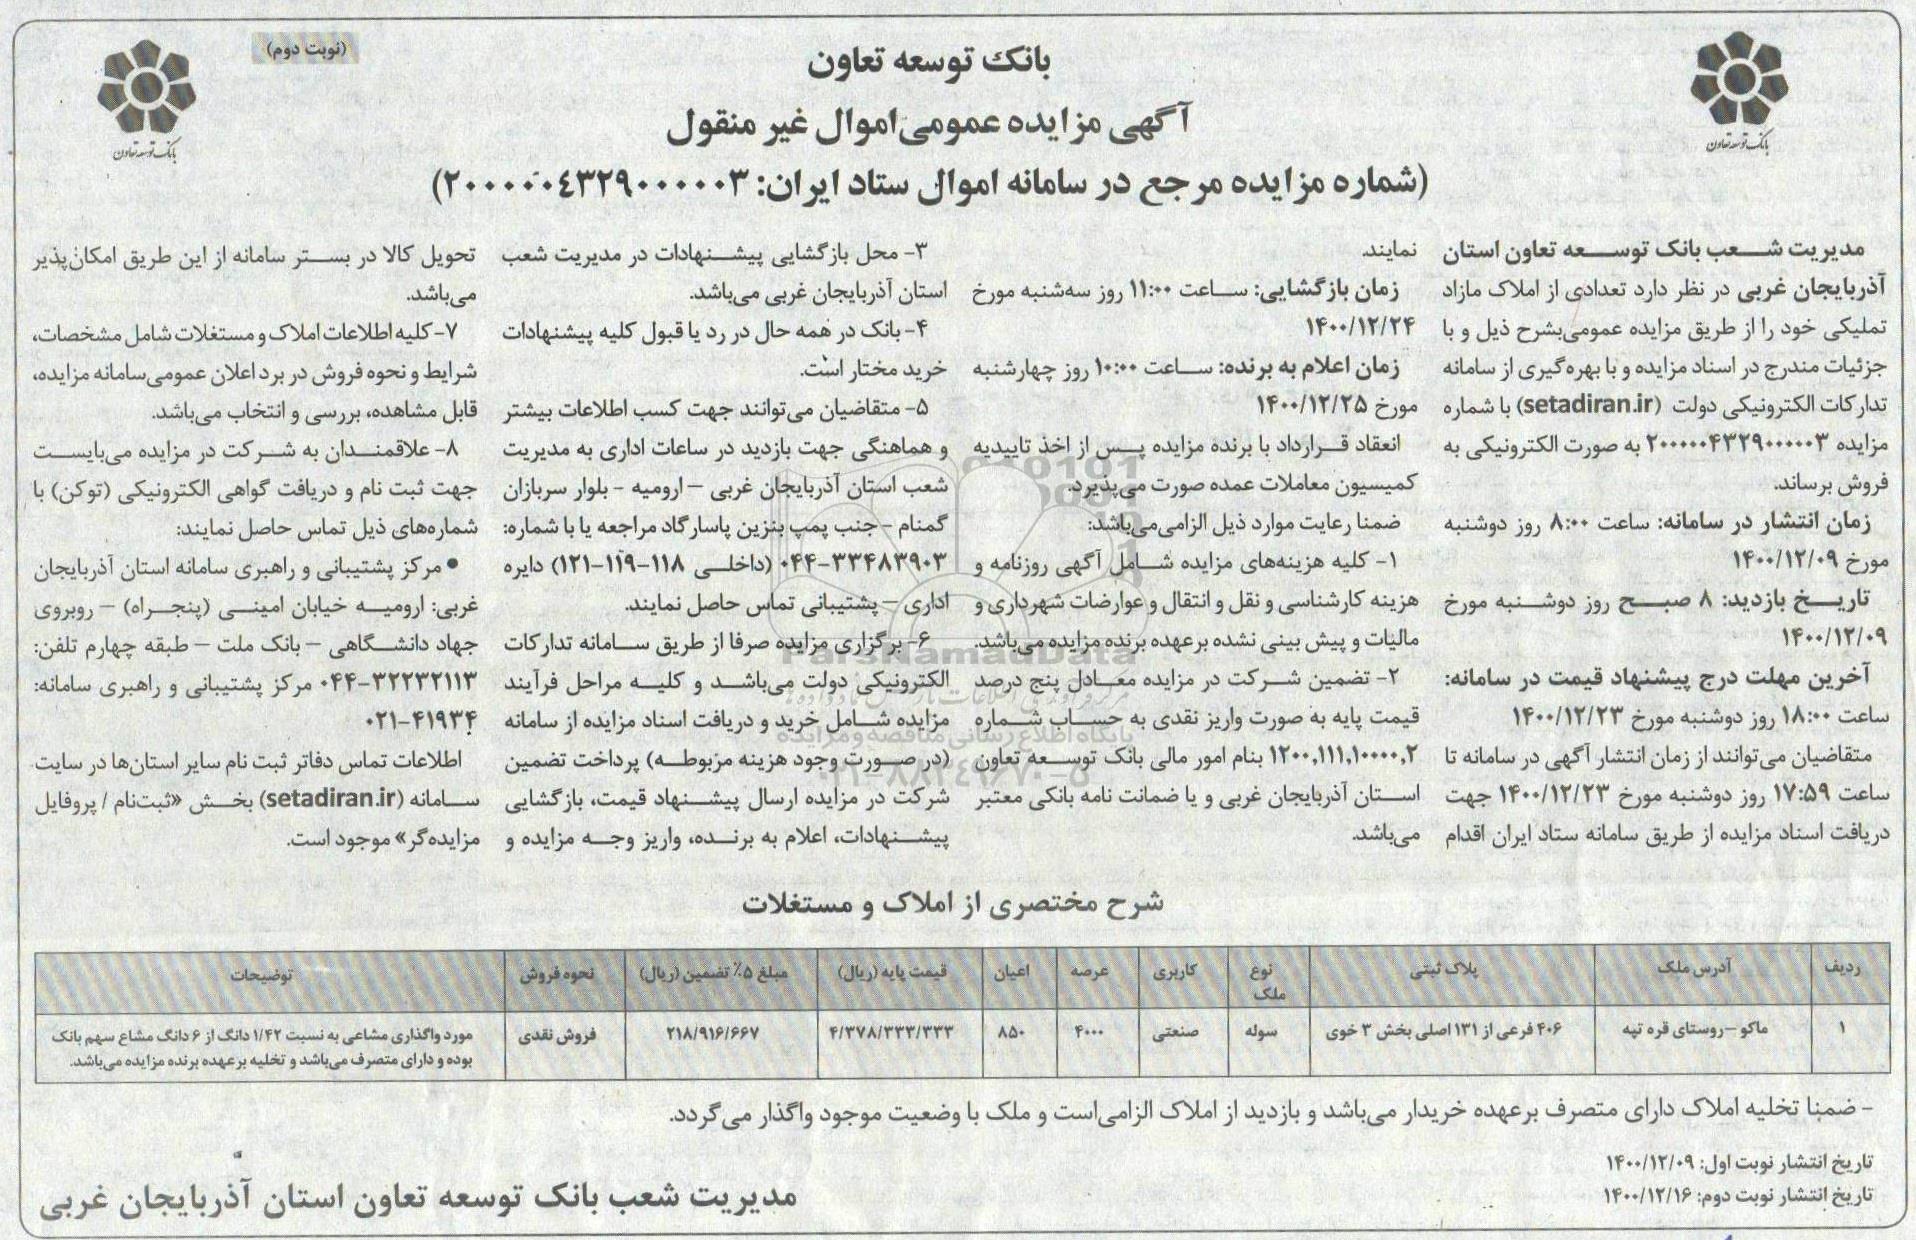 (نوبت دوم)
بانک توسعه تعاون
بانک توسعه تعاون
بانک توسعه تعاون
آگهی مزایده عمومی اموال غیر منقول
(شماره مزایده مرجع در سامانه اموال ستاد ایران: ۲۰۰۰۰۰۴۳۲۹۰۰۰۰۰۳)
مدیریت شعب بانک توسعه تعاون استان
آذربایجان غربی در نظر دارد تعدادی از املاک مازاد
تملیکی خود را از طریق مزایده عمومی بشرح ذیل و با
جزئیات مندرج در اسناد مزایده و با بهره گیری از سامانه
تدارکات الکترونیکی دولت (setadiran.ir) با شماره
مزایده ۲۰۰۰۰۰۴۳۲۹۰۰۰۰۰۳ به صورت الکترونیکی به
فروش برساند.
زمان انتشار در سامانه: ساعت ۸:۰۰ روز دوشنبه
مورخ ۱۴۰۰/۱۲/۰۹
تاریخ بازدید: ۸ صبح روز دوشنبه مورخ
۱۴۰۰/۱۲/۰۹
آخرین مهلت درج پیشنهاد قیمت در سامانه:
ساعت ۱۸:۰۰ روز دوشنبه مورخ ۱۴۰۰/۱۲/۲۳
متقاضیان می‌توانند از زمان انتشار آگهی در سامانه تا
ساعت ۱۷:۵۹ روز دوشنبه مورخ ۱۴۰۰/۱۲/۲۳ جهت
دریافت اسناد مزایده از طریق سامانه ستاد ایران اقدام
نمایند.
زمان بازگشایی: ساعت ۱۱:۰۰ روز سه‌شنبه مورخ
۱۴۰۰/۱۲/۲۴
زمان اعلام به برنده: ساعت ۱۰:۰۰ روز چهارشنبه
مورخ ۱۴۰۰/۱۲/۲۵
انعقاد قرارداد با برنده مزایده پس از اخذ تاییدیه
کمیسیون معاملات عمده صورت می‌پذیرد.
ضمنا رعایت موارد ذیل الزامی می‌باشد:
۱- کلیه هزینه‌های مزایده شامل آگهی روزنامه و
هزینه کارشناسی و نقل و انتقال و عوارضات شهرداری و
مالیات و پیش بینی نشده برعهده برنده مزایده می‌باشد.
۲- تضمین شرکت در مزایده معادل پنج درصد
قیمت پایه به صورت واریز نقدی به حساب شماره
۱۲۰۰,۱۱۱,۱۰۰۰۰,۲ بنام امور مالی بانک توسعه تعاون
استان آذربایجان غربی و یا ضمانت نامه بانکی معتبر
می‌باشد.
۳- محل بازگشایی پیشنهادات در مدیریت شعب
استان آذربایجان غربی می‌باشد.
۴- بانک در همه حال در رد یا قبول کلیه پیشنهادات
خرید مختار است.
۵- متقاضیان می‌توانند جهت کسب اطلاعات بیشتر
و هماهنگی جهت بازدید در ساعات اداری به مدیریت
شعب استان آذربایجان غربی – ارومیه - بلوار سربازان
گمنام - جنب پمپ بنزین پاسارگاد مراجعه یا با شماره:
۰۴۴-۳۳۴۸۳۹۰۳ (داخلی ۱۱۸-۱۱۹-۱۲۱) دایره
اداری – پشتیبانی تماس حاصل نمایند.
۶- برگزاری مزایده صرفا از طریق سامانه تدارکات
الکترونیکی دولت می‌باشد و کلیه مراحل فرآیند
مزایده شامل خرید و دریافت اسناد مزایده از سامانه
(در صورت وجود هزینه مربوطه) پرداخت تضمین
شرکت در مزایده ارسال پیشنهاد قیمت، بازگشایی
پیشنهادات، اعلام به برنده، واریز وجه مزایده و
تحویل کالا در بستر سامانه از این طریق امکان‌پذیر
می‌باشد.
۷- کلیه اطلاعات املاک و مستغلات شامل مشخصات،
شرایط و نحوه فروش در برد اعلان عمومی سامانه مزایده،
قابل مشاهده، بررسی و انتخاب می‌باشد.
۸- علاقمندان به شرکت در مزایده می‌بایست
جهت ثبت نام و دریافت گواهی الکترونیکی (توکن) با
شماره‌های ذیل تماس حاصل نمایند:
• مرکز پشتیبانی و راهبری سامانه استان آذربایجان
غربی: ارومیه خیابان امینی (پنجراه) – روبروی
جهاد دانشگاهی – بانک ملت – طبقه چهارم تلفن:
۰۴۴-۳۲۲۳۲۱۱۳ مرکز پشتیبانی و راهبری سامانه:
۰۲۱-۴۱۹۳۴
اطلاعات تماس دفاتر ثبت نام سایر استان‌ها در سایت
سامانه (setadiran.ir) بخش «ثبت‌نام / پروفایل
مزایده‌گر» موجود است.
ParsNamadData
پایگاه اطلاع رسانی مناقصه و مزایده
۰۲۱-۸۸۳۴۹۶۷۰-۵
شرح مختصری از املاک و مستغلات
ردیف آدرس ملک پلاک ثبتی نوع ملک کاربری عرصه اعیان قیمت پایه (ریال) مبلغ ۵٪ تضمین (ریال) نحوه فروش توضیحات
۱ ماکو – روستای قره تپه ۴۰۶ فرعی از ۱۳۱ اصلی بخش ۳ خوی سوله صنعتی ۴۰۰۰ ۸۵۰ ۴/۳۷۸/۳۳۳/۳۳۳ ۲۱۸/۹۱۶/۶۶۷ فروش نقدی مورد واگذاری مشاعی به نسبت ۱/۴۲ دانگ از ۶ دانگ مشاع سهم بانک
بوده و دارای متصرف می‌باشد و تخلیه برعهده برنده مزایده می‌باشد.
- ضمنا تخلیه املاک دارای متصرف برعهده خریدار می‌باشد و بازدید از املاک الزامی است و ملک با وضعیت موجود واگذار می‌گردد.
تاریخ انتشار نوبت اول: ۱۴۰۰/۱۲/۰۹
تاریخ انتشار نوبت دوم: ۱۴۰۰/۱۲/۱۶
مدیریت شعب بانک توسعه تعاون استان آذربایجان غربی